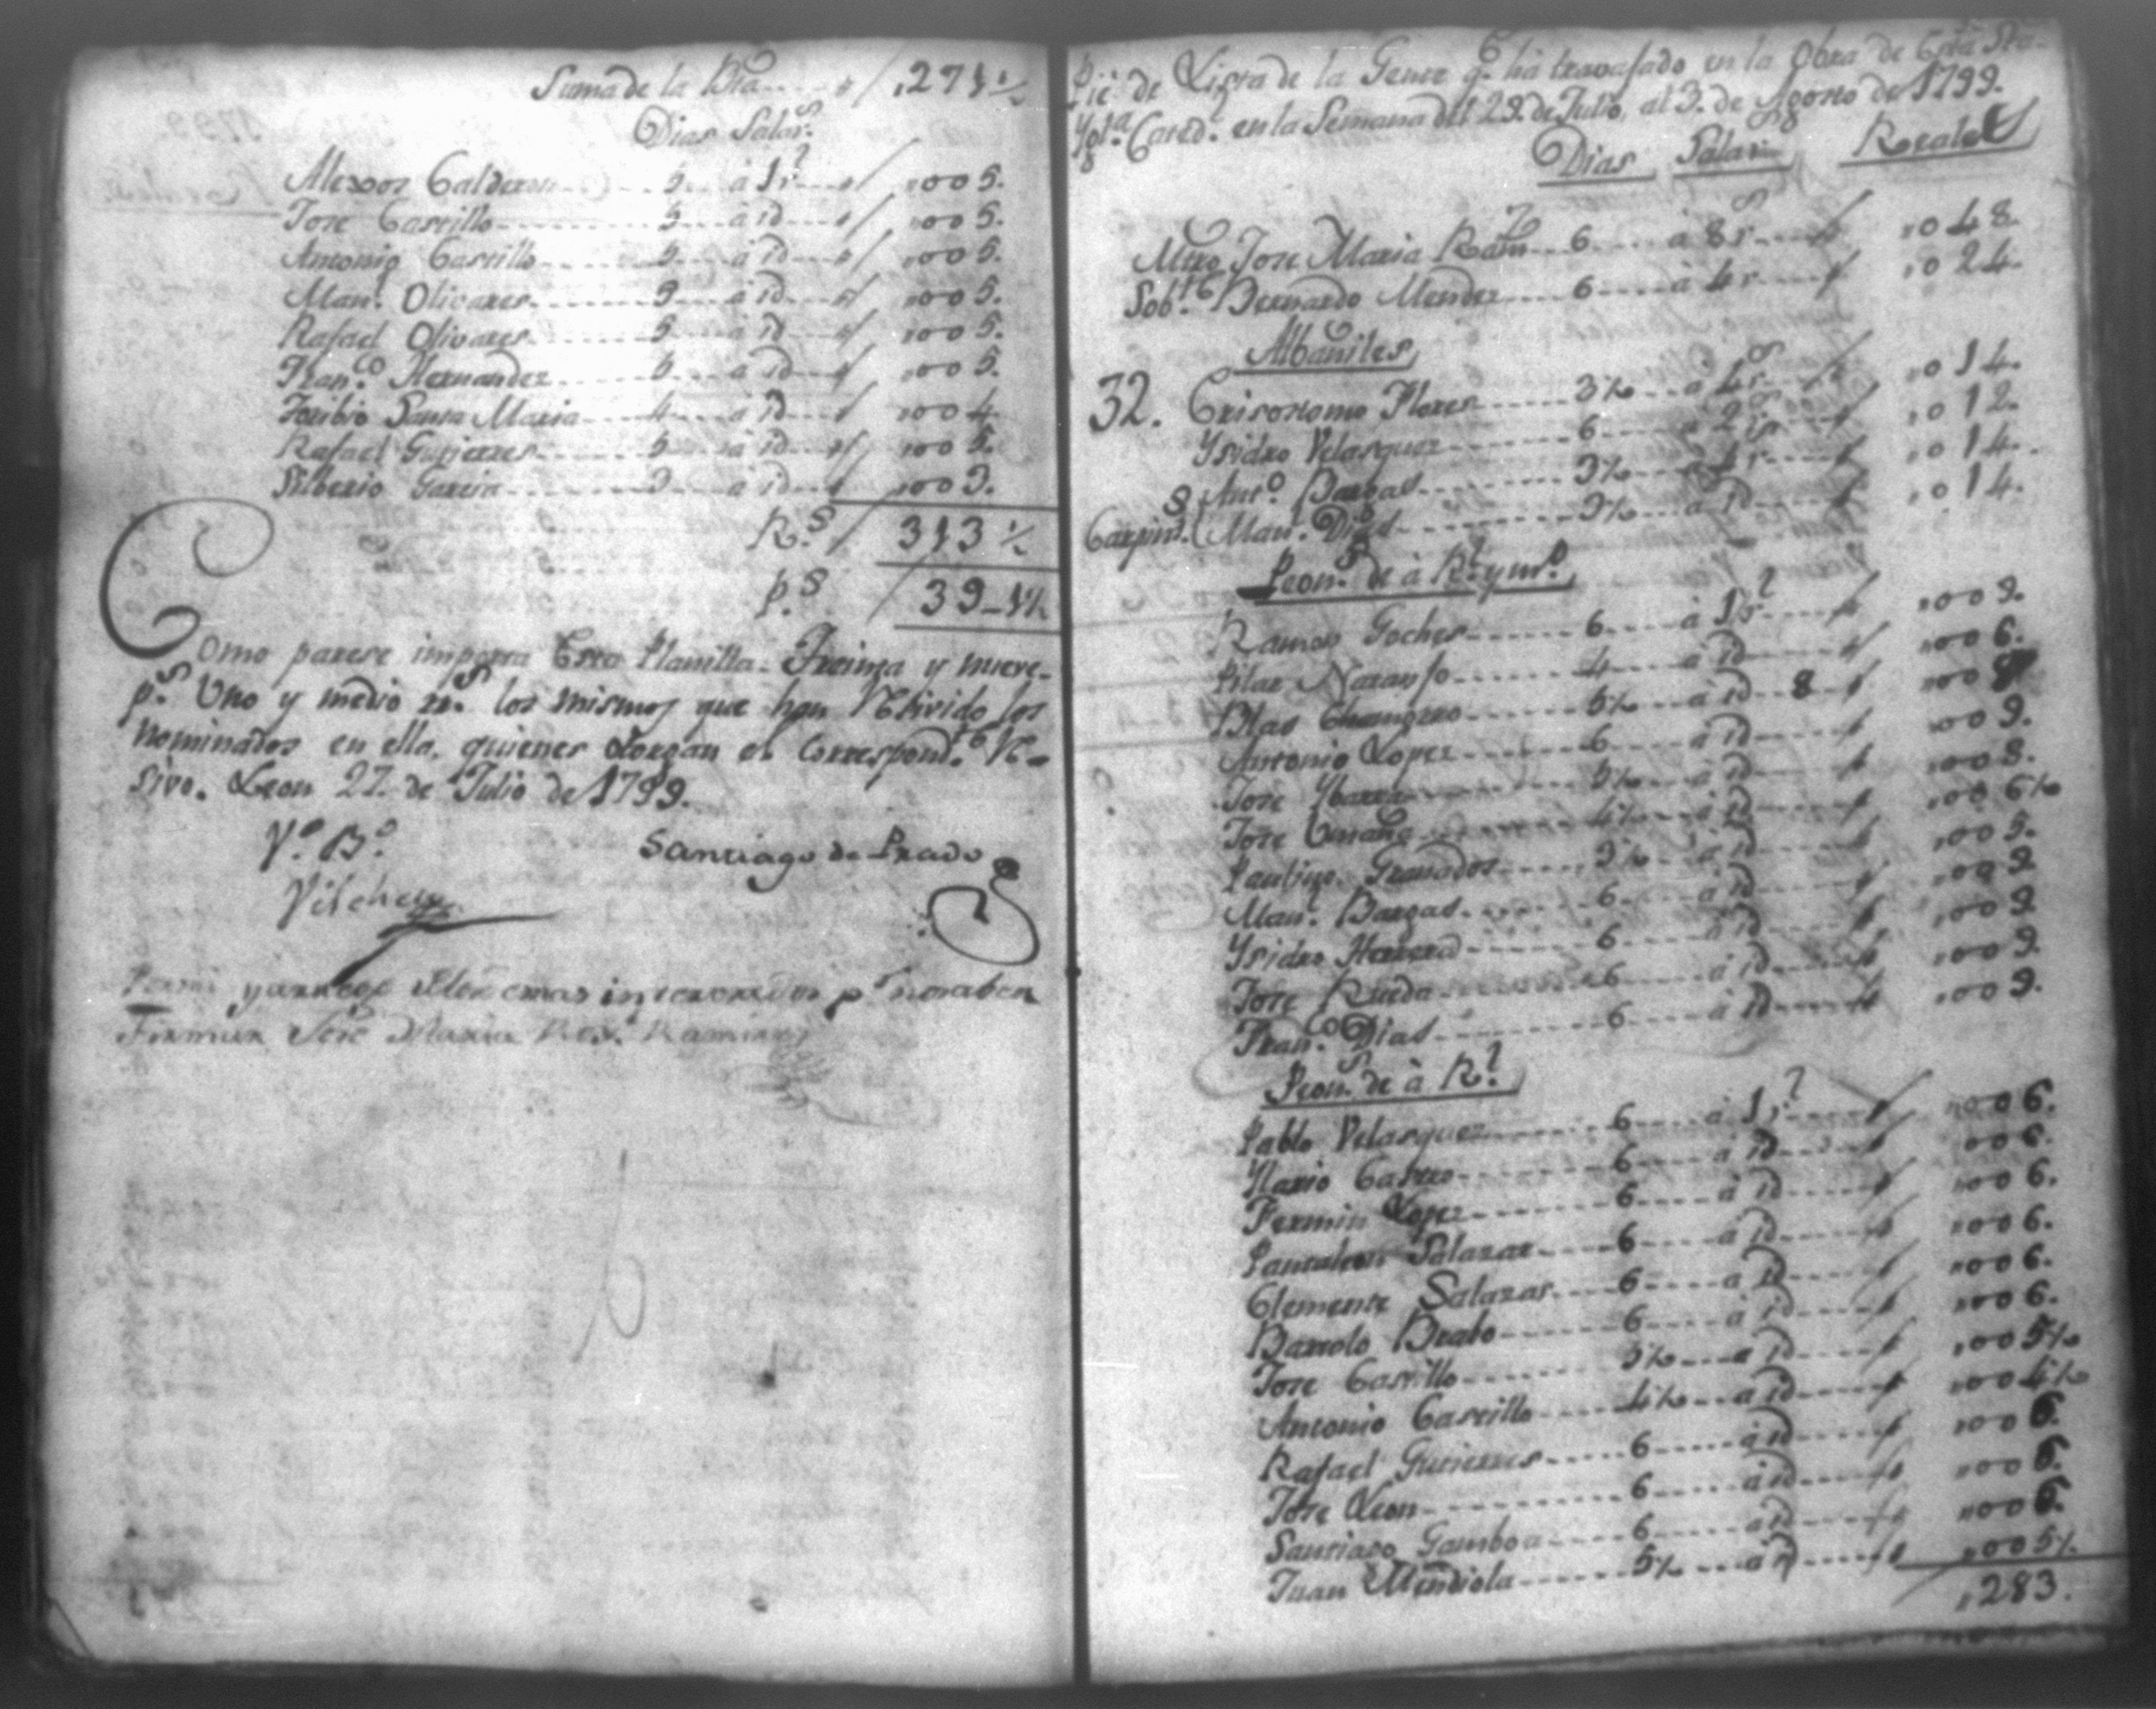 Suma de la Bta. " / ,271½
Dias Salar.s
Alexos Calderon 5 a 1r.l " / ,,005.
Jose Castillo 5 a id " / ,,005.
Antonio Castillo 5 a id " / ,,005.
Man.l Olivares 5 a id " / ,,005.
Rafael Olivares 5 a id " / ,,005.
Fran.co Hernandez 5 a id " / ,,005.
Toribio Santa Maria 4 a id " / ,,004.
Rafael Gutierres 5 a id " / ,,005.
Silberio Garcia 3 a id " ,,003.
R.s / 313½
p.s / 39-1½
Como parese importa Esta Planilla Treinta y nueve
p.s Uno y medio rr.s los mismos que han Resivido los
nominados en ella, quienes Otorgan el Correspond.te Re-
sivo. Leon 27. de Julio de 1799.
V.o B.o
Vilchez
Santiago de Prado
Firmar Jose Maria Ramires
Pie de Lista de la Gente q.e ha travajado en la Obra de Esta Sta.
Ygl.a Cated.l en la Semana del 29. de Julio, al 3. de Agosto de 1799.
Dias Salar.s Reales
Mtro Jose Maria Ram.z 6 a 8r.s " / ,,048.
Sob.te Bernardo Mendez 6 a 4r.s " / ,,024.
Albañiles
32. Crisostomo Flores 3½ a 4r.s " / ,,014.
Ysidro Velasquez 6 a 2r.s " / ,,012.
Ant.o Bargas 3½ a 4r.s " / ,,014.
Carpint.s (Man.l Dias 3½ a id " / ,,014.
Peon.s de à R.l y m.o
Ramon Goches 6 a 1½r.l " / ,,009.
Pilar Naranjo 4 a id " / ,,006.
Blas 5½ a id 8 " / ,,008
Antonio Lopez 6 a id " / ,,009.
Jose Ybarra 5½ a id " / ,,008.
Jose Umaña 4½ a id " / ,,006½
Paulino Granados 3½ a id " / ,,005.
Man.l Bargas 6 a id " / ,,009
Ysidro Herrera 6 a id " / ,,009
Jose Rueda 6 a id " / ,,009.
Fran.co Dias 6 a id " / ,,009.
Peon.s de à R.l
Pablo Velasquez 6 a 1r.l " / ,,006.
Ylario Castro 6 a id " / ,,006.
Fermin Lopez 6 a id " / ,,006.
Pantaleon Salazar 6 a id " / ,,006.
Clemente Salazar 6 a id " / ,,006.
Bartolo Brabo 6 a id " / ,,006.
Jose Castillo 5½ a id " / ,,005½
Antonio Castillo 4½ a id " / ,,004½
Rafael Gutierres 6 a id " / ,,006.
Jose Leon 6 a id " / ,,006.
Santiago Gamboa 6 a id " / ,,006.
Juan Mendiola 5½ a id " / ,,005½
/ ,,283.